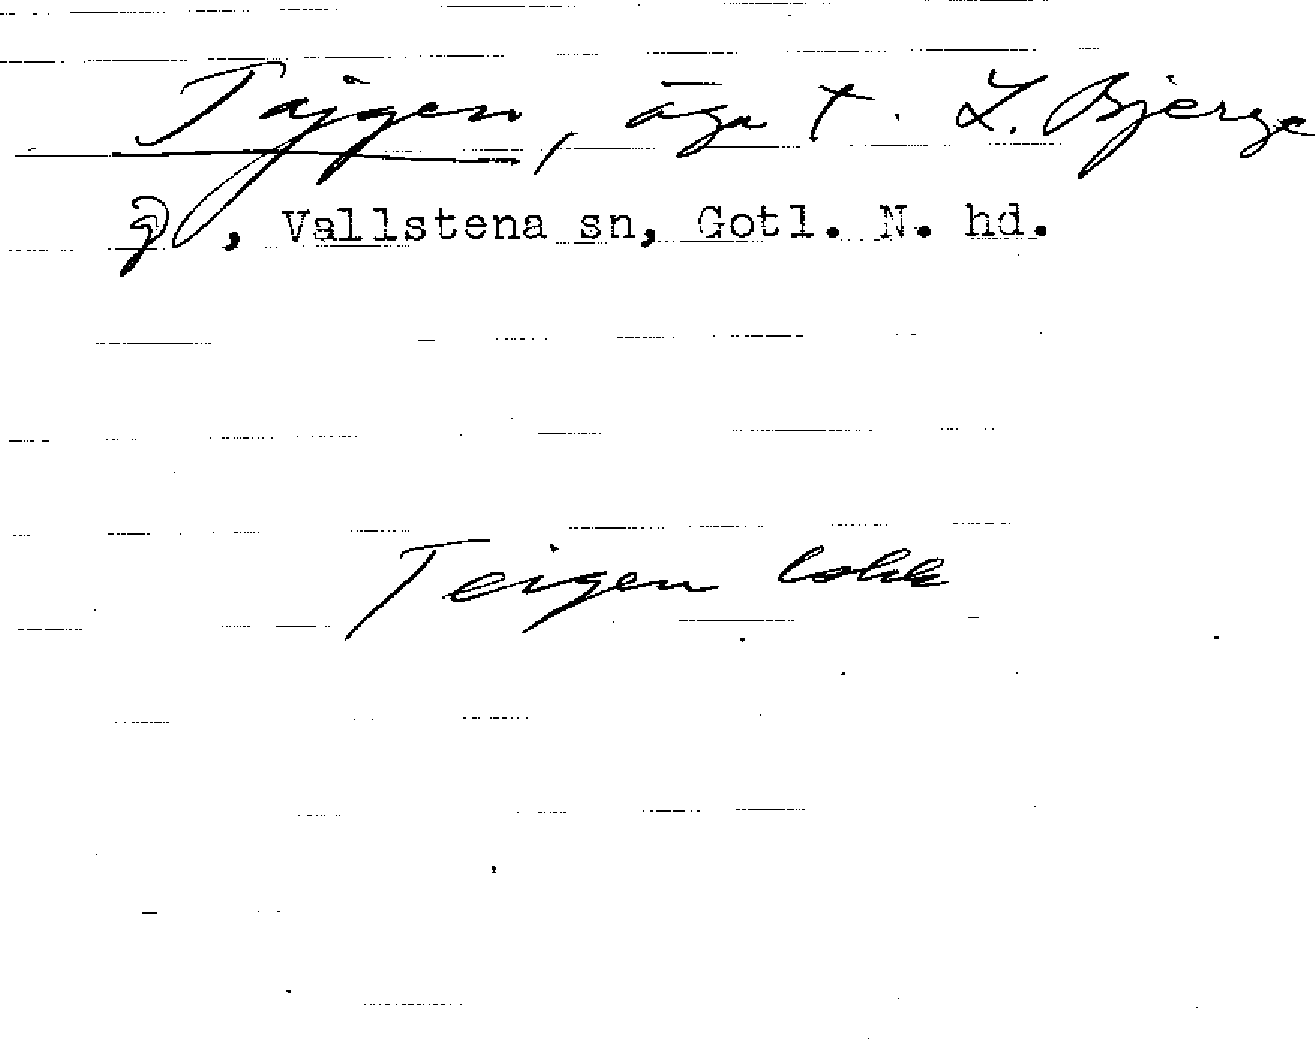 Täjgen, äga t. L. Bjerge
g, Vallstena sn, Gotl. N. hd.
Teigen